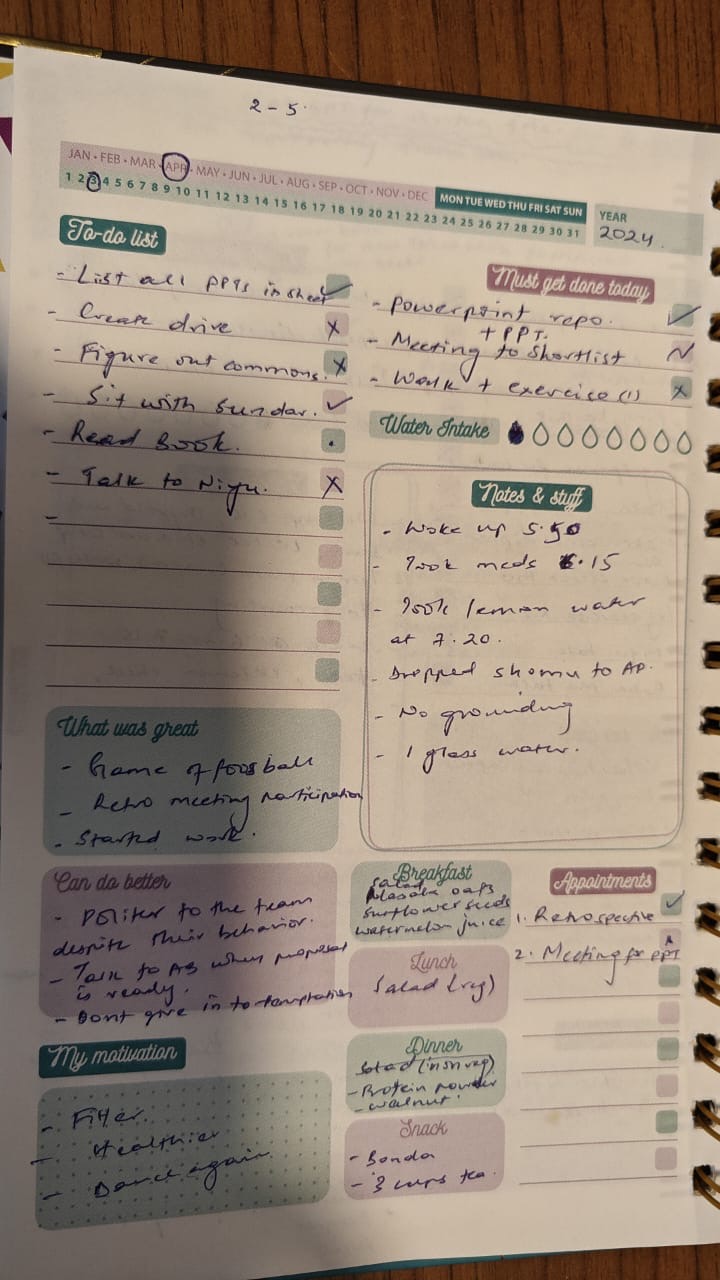 2-5.
JAN • FEB • MAR • APR • MAY • JUN • JUL • AUG • SEP • OCT • NOV • DEC
1 2 3 4 5 6 7 8 9 10 11 12 13 14 15 16 17 18 19 20 21 22 23 24 25 26 27 28 29 30 31
MON TUE WED THU FRI SAT SUN
YEAR
2024.
To-do list
- List all PPTs in sheet
- Create drive
- Figure out commons.
- Sit with Sundar.
- Read Book.
- Talk to Niyu.
-
Must get done today
- Powerpoint repo.
+ PPT.
- Meeting to Shortlist
- Walk + exercise (1)
Water Intake
Notes & stuff
- Woke up 5.50
- Took meds 6.15
- Took lemon water
at 7.20.
- Dropped Shomu to AP.
- No grounding
- 1 glass water.
What was great
- Game of foosball
- Retro meeting participation
- Started work.
Can do better
- Politer to the team
despite their behavior.
- Talk to AB when proposal
is ready.
- Dont give in to temptation
My motivation
- Fitter.
- Healthier
- Dance again
Breakfast
Salad
Masala oats
Sunflower seeds
watermelon juice
Lunch
Salad (veg)
Dinner
Salad (non veg)
- Protein powder
- walnut.
Snack
- Bonda
- 3 cups tea.
Appointments
1. Retrospective
2. Meeting for PPT